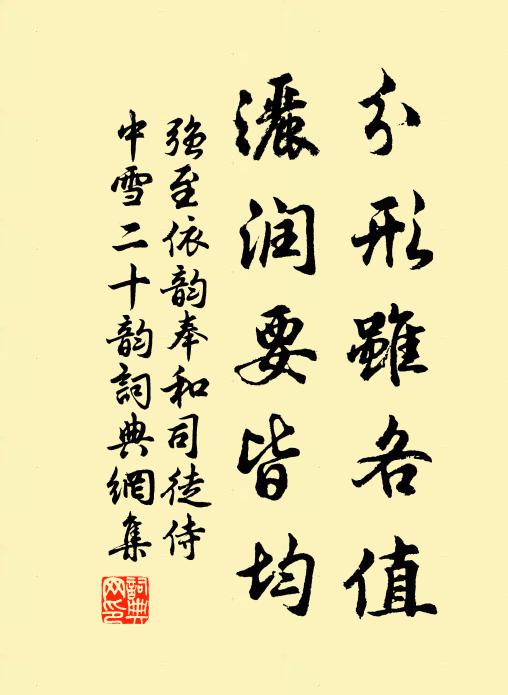 分形雖各值
灑润要皆均
強至依韵奉和司徒侍
中雪二十韵詞典網集
詞典网印